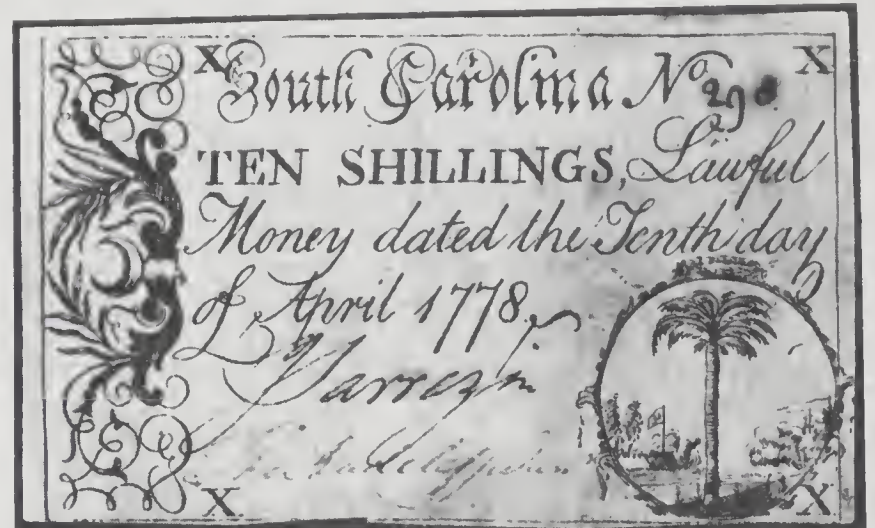 X South Carolina No. 298 X
TEN SHILLINGS, Lawful
Money dated the Tenth day
of April 1778.
X X